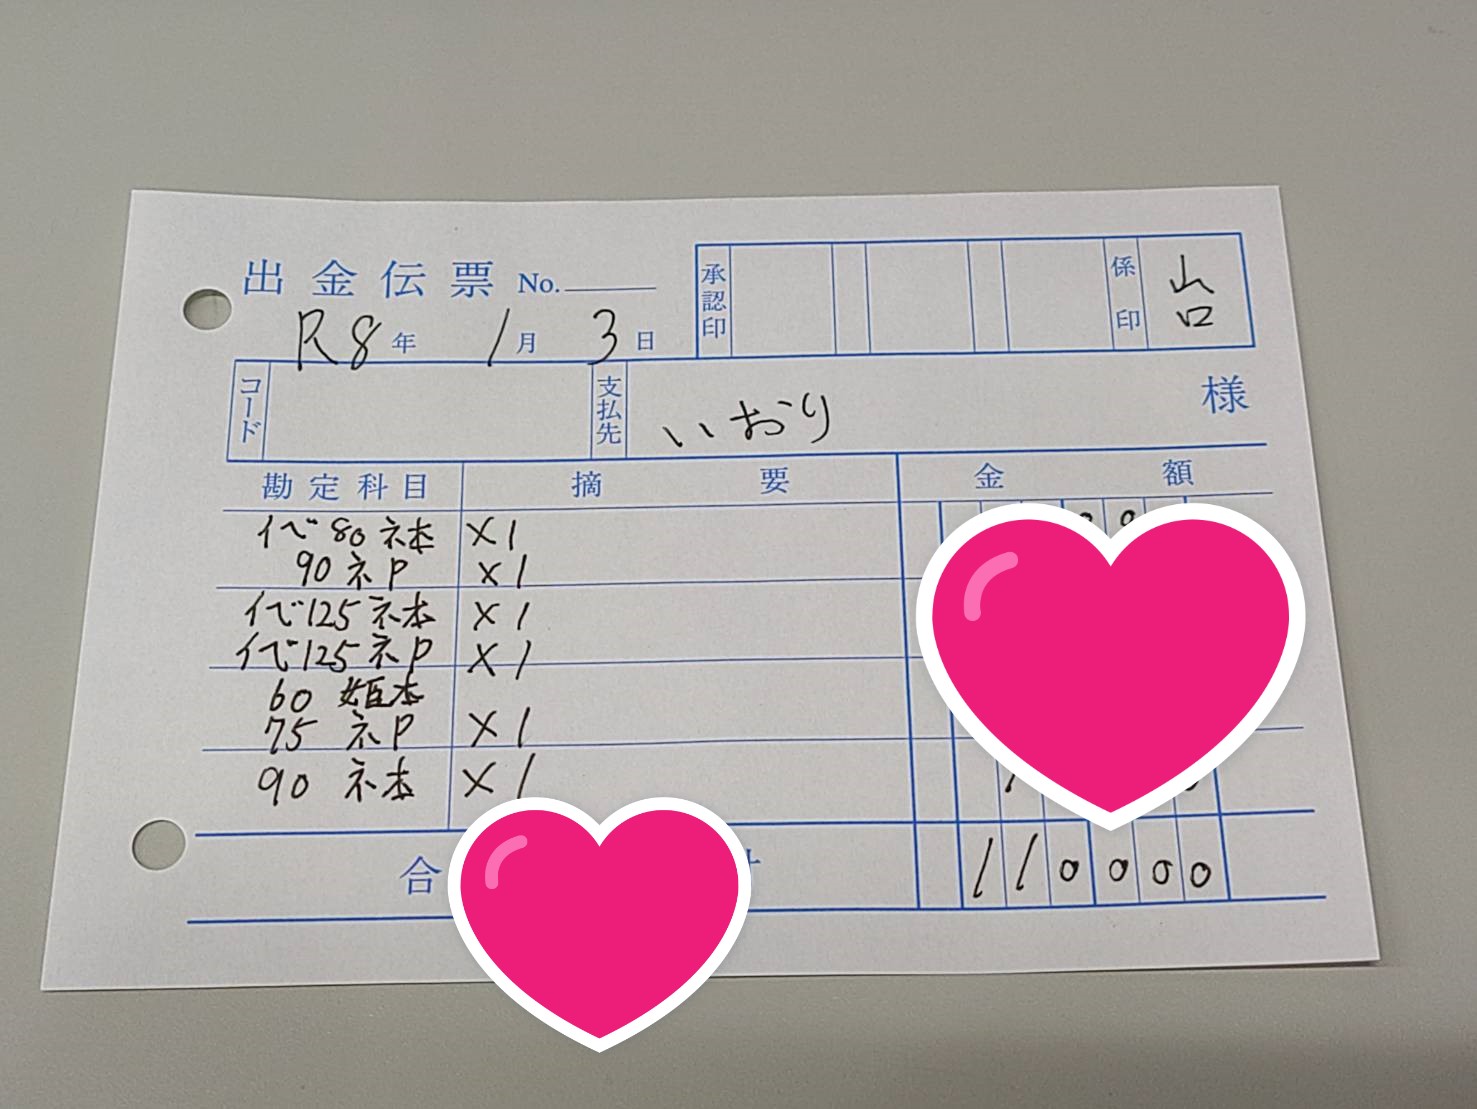 出金伝票 No.
R8年 1月 3日
承認印
係印 山口
コード
支払先 いおり 様
勘定科目 摘要 金額
イベ80 ネ本 ×1
90 ネP ×1
イベ125 ネ本 ×1
イベ125 ネP ×1
60 姫本
75 ネP ×1
90 ネ本 ×1
合 110000